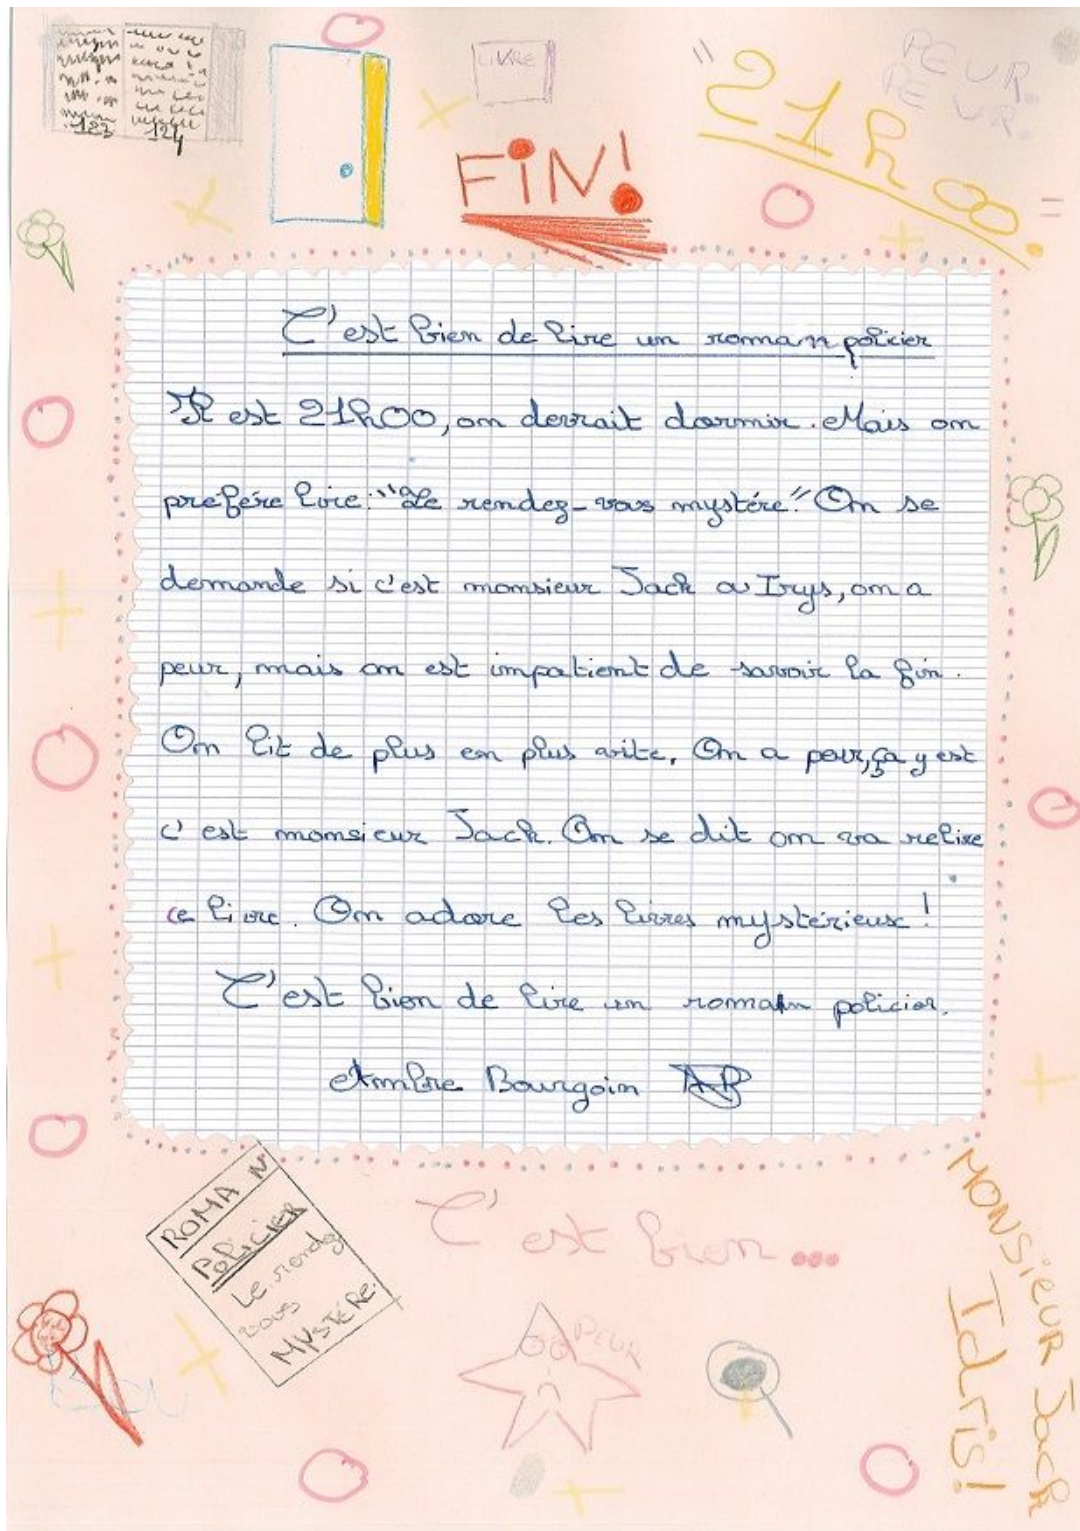 123 124
LIVRE
FiN!
"21h00."
PEUR.
PEUR.
C'est bien de lire un roman policier
Il est 21h00, on devrait dormir. Mais on
préfére lire : "Le rendez-vous mystére". On se
demande si c'est monsieur Jack ou Irys, on a
peur, mais on est impatient de savoir la fin.
On lit de plus en plus vite. On a peur, ça y est
c'est monsieur Jack. On se dit on va relire
ce livre. On adore les livres mystérieux !
C'est bien de lire un roman policier.
Ambre Bourgoin AB
ROMAN
POLiCiER
Le rendez
vous
MYSTÉRE.
C'est bien...
PEUR
MONSiEUR Jack
Idris!